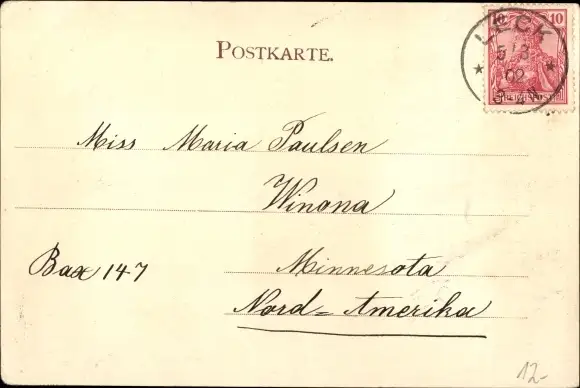 10 10
LECK
5/3
02
POSTKARTE.
Miss Maria Paulsen
Winona
Bax 147
Minnesota
Nord=Amerika
12-